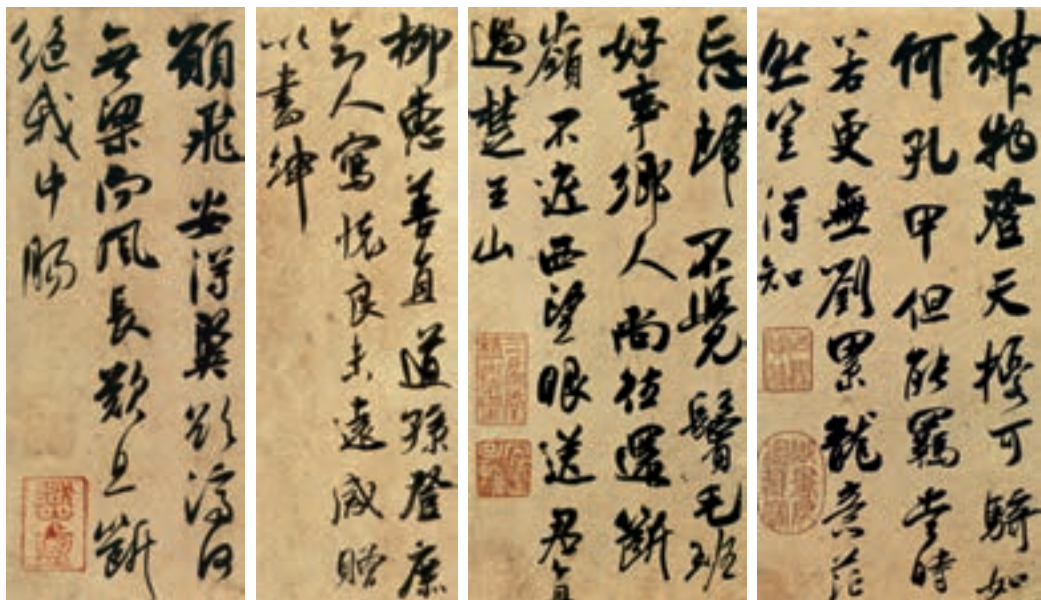 神物登天擾可騎如
何孔甲但能羈當時
若更無劉累龍意茫
然豈得知
忘歸不覺鬢毛班
好事鄉人尚往還斷
嶺不遮西望眼送君直
過楚王山
柳惠善直道孫登庶
知人寫懷良未遠感贈
以書紳
願飛安得翼欲濟河
無梁向風長歎息斷
絕我中腸